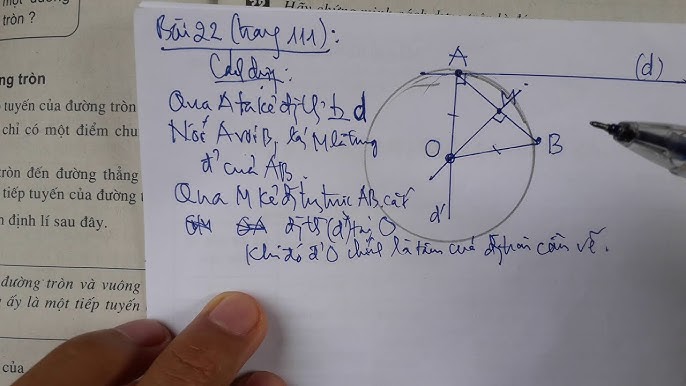 một đường
tròn ?
ng tròn
tuyến của đường tròn
chỉ có một điểm chu
ròn đến đường thẳng
tiếp tuyến của đường
n định lí sau đây.
đường tròn và vuông
ấy là một tiếp tuyến
của
22 Hãy chứng minh
Bài 22 (trang 111):
Cách dựng:
Qua A ta kẻ đg th ⊥ d
Nối A với B, lấy M là trung
đ' của AB
Qua M kẻ đg tg trực AB, cắt
đg th (d') tại O
Khi đó đ' O chính là tâm của đg tròn cần vẽ.
A
(d)
M
B
O
d'